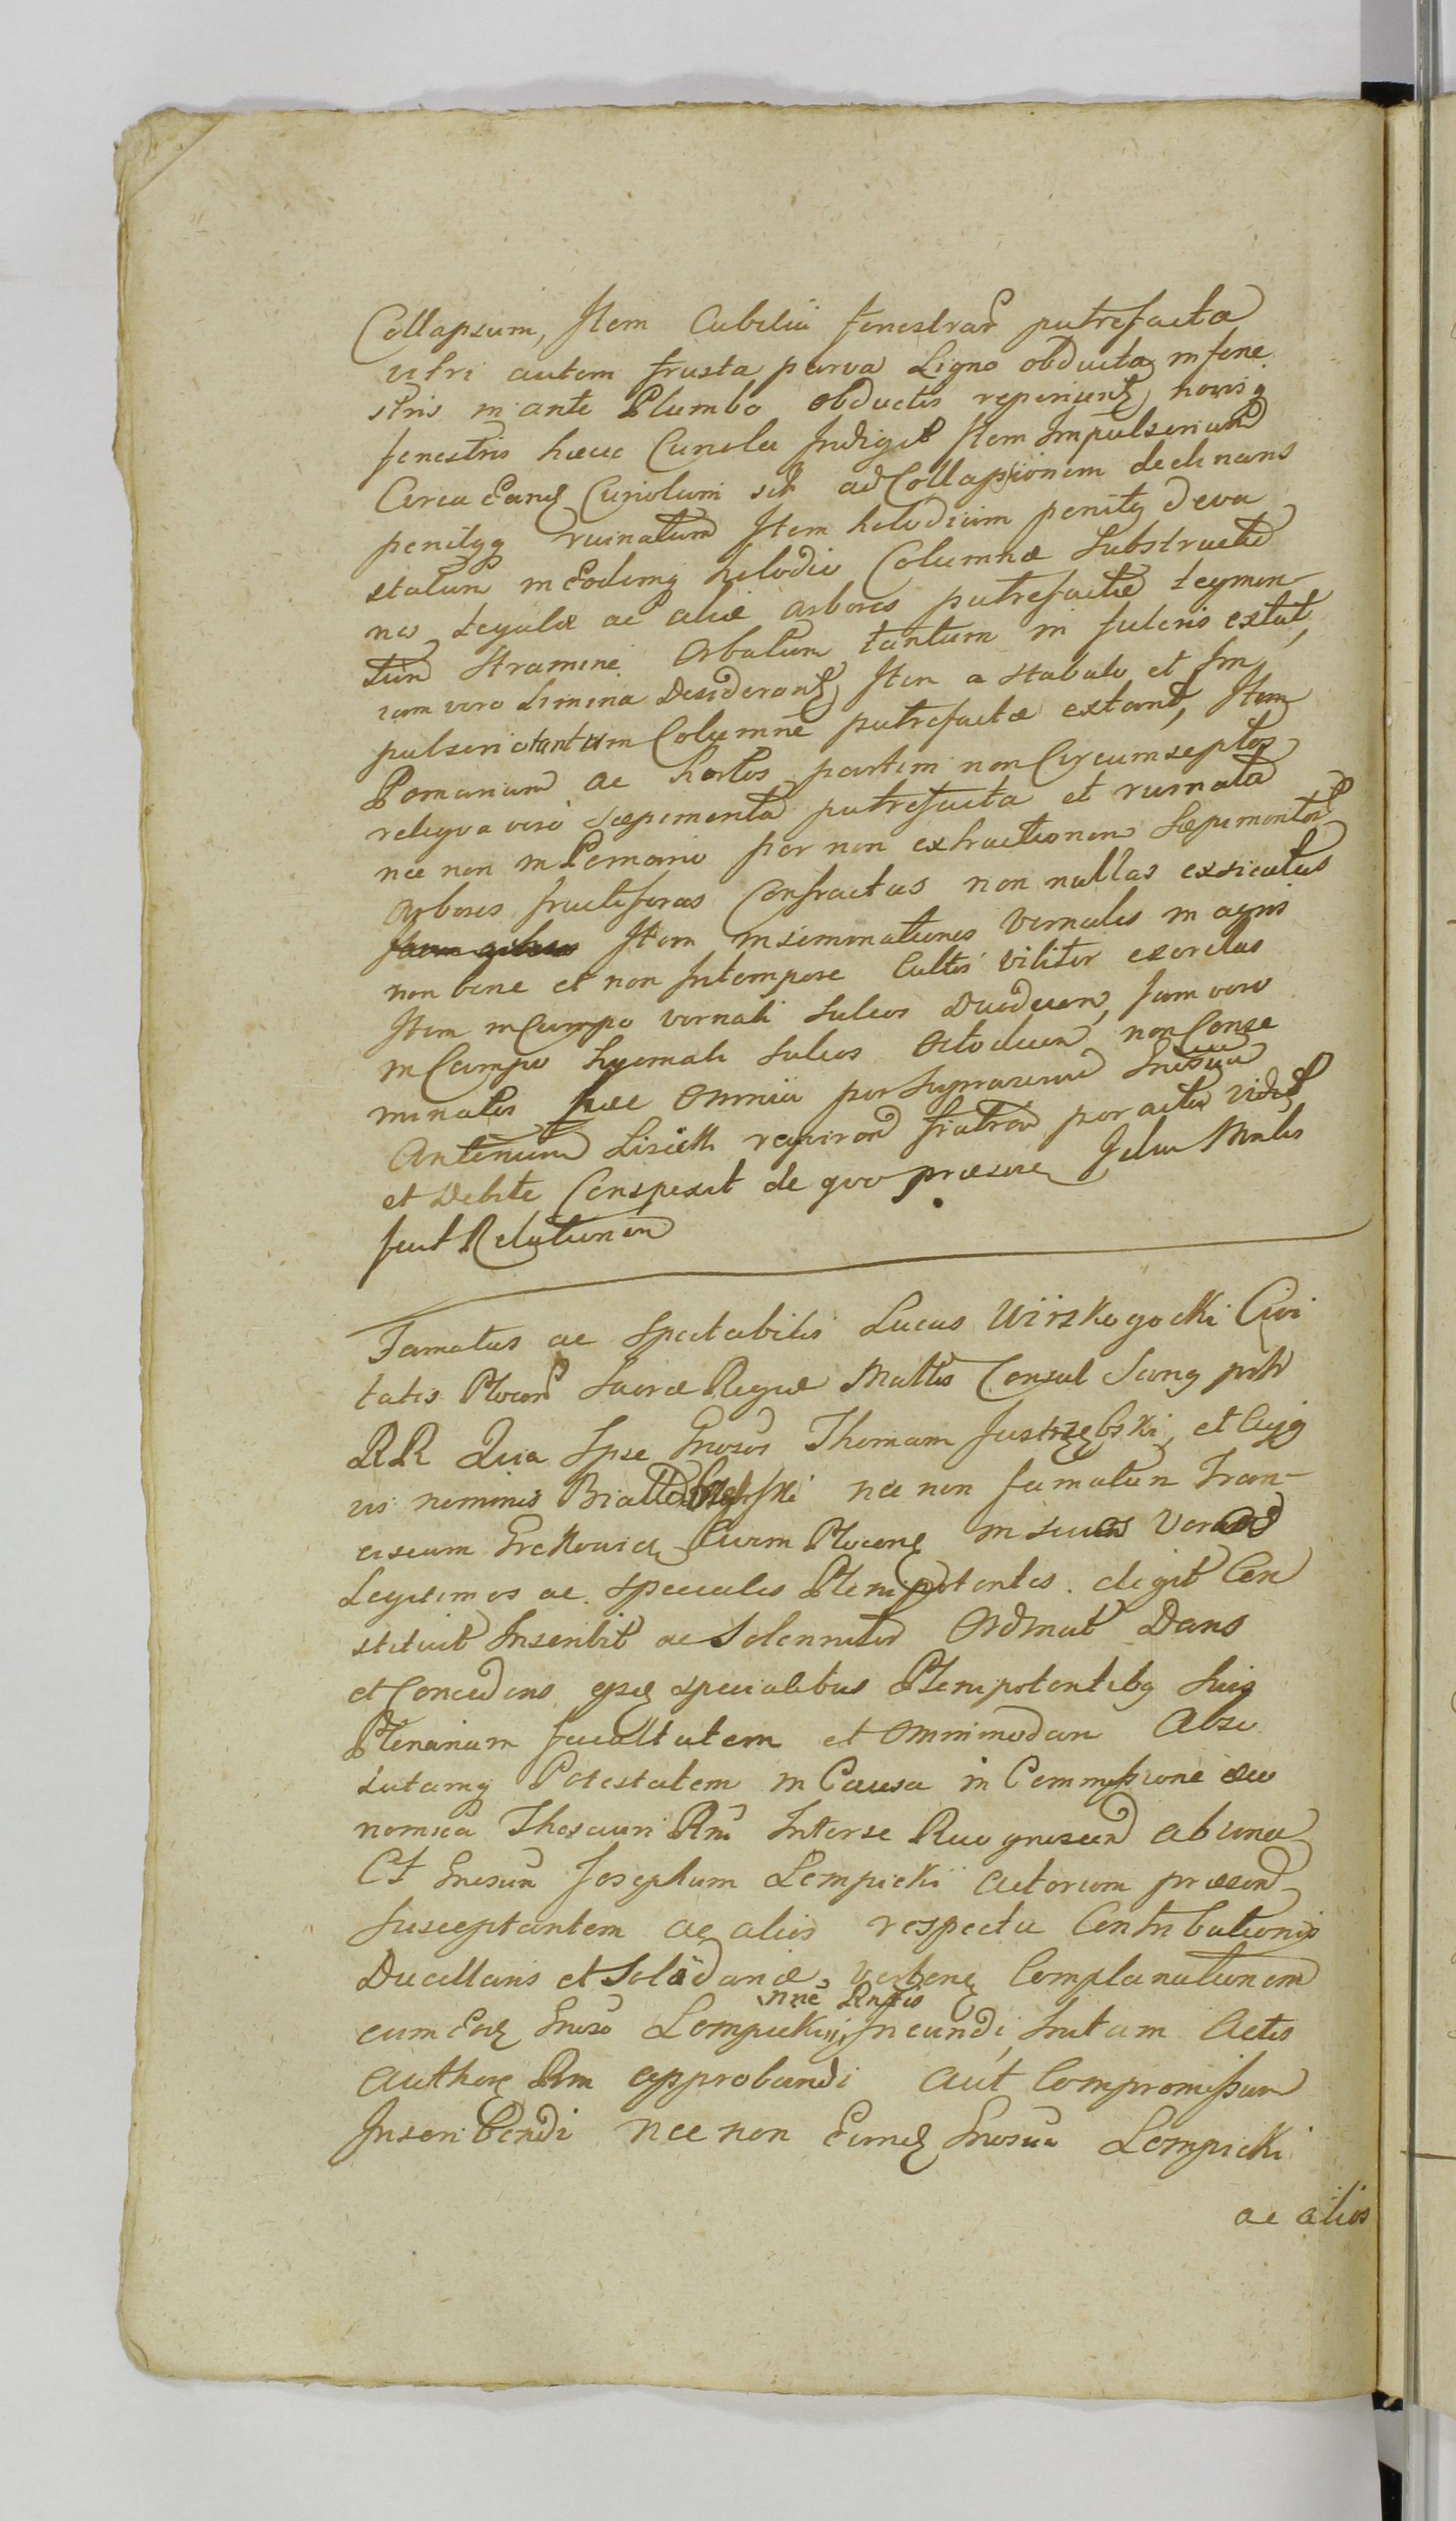 Collapsum, Item Cubilia fenestrar putrefacta
vitri autem frusta parva Ligno obducta in fene
stris in ante Plumbo obductis reperiunt novisq
fenestris haecce Curiola Indiget Item Impulsorium
Circa Eand Curiolam sit ad Collapsionem declinans
penitqq ruinatum Item holodium penitq deva
statum in Eodemq holodio Columnae Substructae
nes tegulae ac aliae arbores putrefactae tegmen
tum Stramine Orbatum tantum in sulcris extat,
iam vero Limina Desiderant Item a stabulo et Im
pulsorio tantum Columnae putrefactae extant, Item
Pomarium ac hortos partim non Circumseptos
reliqva vero Saepimenta putrefacta et ruinata
nec non in Pomario per non extructionem Saepimentor
Arbores fructiferas Confractas non nullas exsicatas
Item inseminationes Vernales in agris
non bene et non Intempore Cultis viliter exercitas
Item in Campo vernali Sulcos Duodecem, Iam vero
in Campo hyemali Sulcos Octodecem non Conse
minatos haec Omnia per Gnosum
Antonium Lisicki reqviren fratrem peracta vidit
et Debite Conspexit de quo praesens Idem Mnlis
fecit Relationem
Famatus ac Spectabilis Lucas Wirzkogocki Civi
tatis Plocen Sacrae Regiae Mattis Consul Sang prtr
RR Qvia Ipse Gnosos Thomam Jastrzębski et Cujq
vis nominis nec non famatum Fran-
ciscum Grekowicz Civem Plocens in suos Veros
Legitimos ac speciales Plenipotentes elegit Con
stituit Inscribit ac Solenniter Ordinat Dans
et Concedens ipsis specialibus Plenipotentibq Suis
Plenariam facultatem et Omnimodam Abso
lutamq Potestatem in Causa in Commissione oeco
nomica Thesauri Rni Interse Recognoscen ab una
Et Gnosum Josephum Lempicki Actorium praesent
susceptantem ac alios respectu Contributionis
Ducillaris et Solidariae, Complanationem
nne Rnstis
cum Eod Gnoso Lempicki Ineundi Imtam Actis
Authen Rm approbandi aut Compromissum
Inscribendi nec non Eund Gnosum Lempicki
ac alios